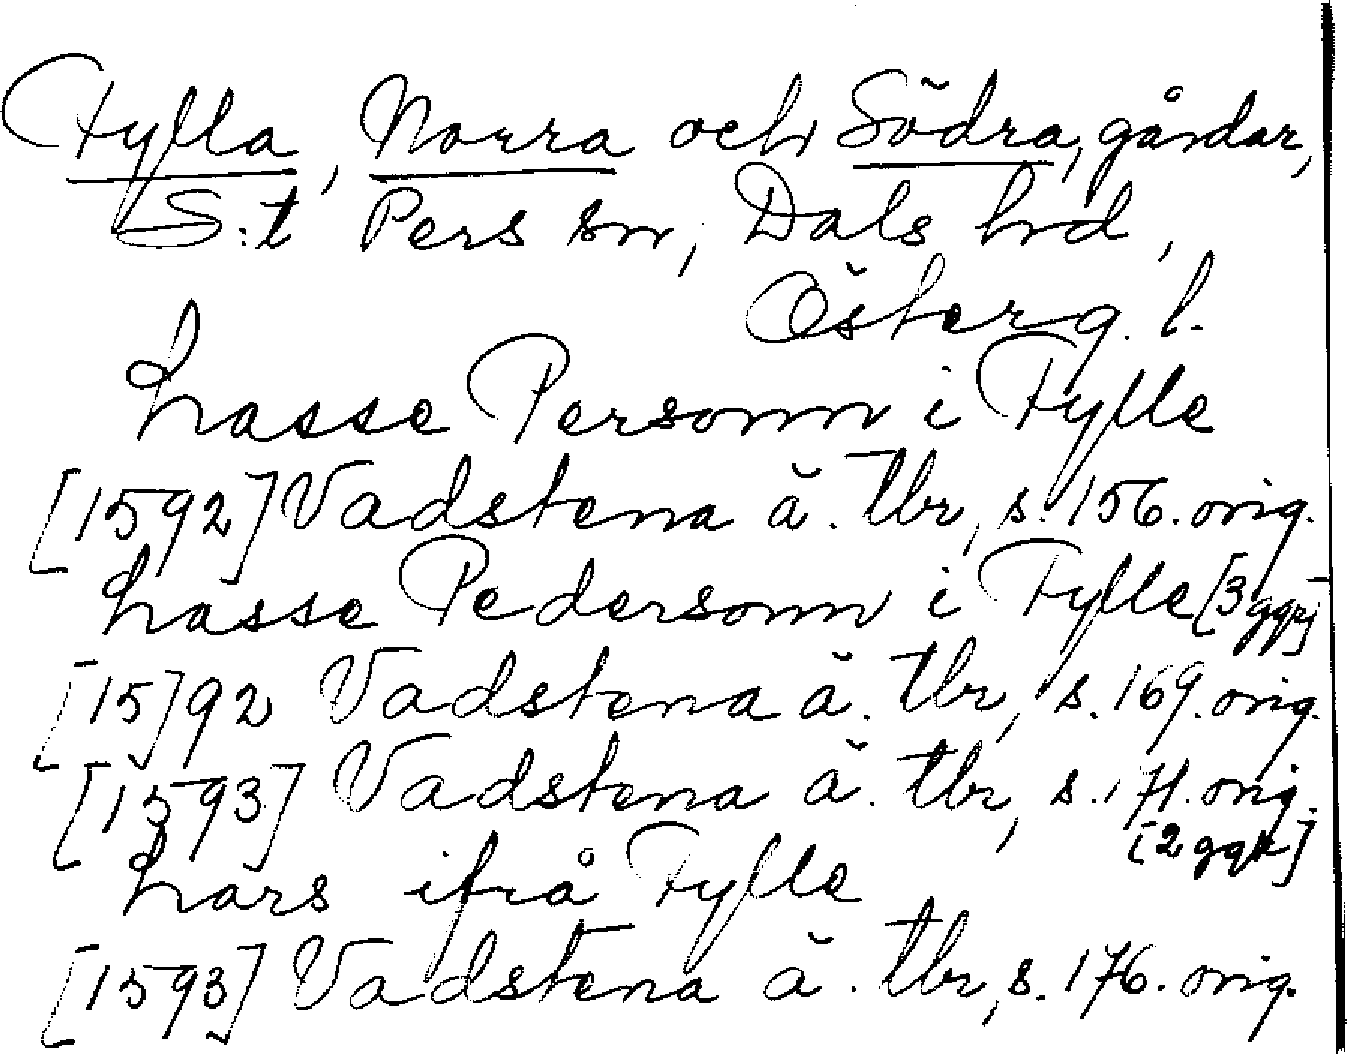 Fylla, Norra och Södra, gårdar,
S:t Pers sn, Dals hd,
Österg. l.
Lasse Personn i Fylle
[1592] Vadstena ä. tbr, s. 156. orig.
Lasse Pedersonn i Fylle [3 ggr]
[15]92 Vadstena ä. tbr, s. 169. orig.
[1593] Vadstena ä. tbr, s. 171. orig.
[2 ggr]
Lars ifrå Fylle
[1593] Vadstena ä. tbr, s. 176. orig.